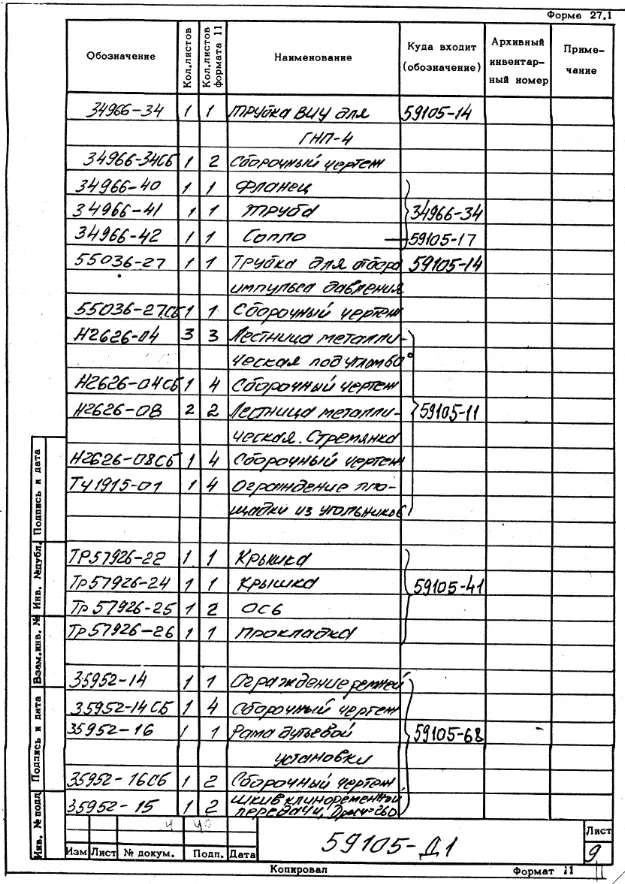 Форма 27.1
Обозначение Кол.листов Кол.листов формата 11 Наименование Куда входит (обозначение) Архивный инвентар- ный номер Приме- чание
34966-34 1 1 Трубка ВИУ для 59105-14
ГНП-4
34966-34СБ 1 2 Сборочный чертеж
34966-40 1 1 Фланец
34966-41 1 1 Труба 34966-34
34966-42 1 1 Сопло 59105-17
55036-27 1 1 Трубка для отбора 59105-14
импульса давления
55036-27СБ 1 1 Сборочный чертеж
Н2626-04 3 3 Лестница металли-
ческая под углом 60°
Н2626-04СБ 1 4 Сборочный чертеж
Н2626-08 2 2 Лестница металли- 59105-11
ческая. Стремянка
Н2626-08СБ 1 4 Сборочный чертеж
ТЧ1915-01 1 4 Ограждение пло-
щадки из угольников
ТР57926-22 1 1 Крышка
Тр57926-24 1 1 Крышка 59105-41
Тр57926-25 1 2 Ось
Тр57926-26 1 1 Прокладка
35952-14 1 1 Ограждение ремней
35952-14СБ 1 4 Сборочный чертеж
35952-16 1 1 Рама дутьевой 59105-68
установки
35952-16СБ 1 2 Сборочный чертеж
35952-15 1 2 Шкив клиноременной
передачи,
Инв. № подл. Подпись и дата Взам.инв. № Инв. №дубл. Подпись и дата
59105-Д1
Изм Лист № докум. Подп. Дата
Лист
9
Копировал Формат 11